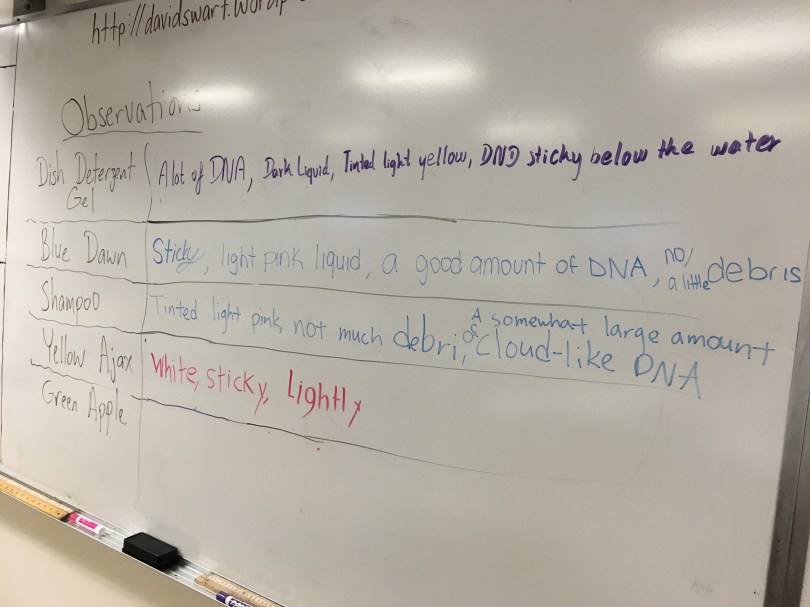 http://davidswart.wordp
Observations
Dish Detergent Gel
A lot of DNA, Dark Liquid, Tinted light yellow, DND sticky below the water
Blue Dawn
Sticky, light pink liquid, a good amount of DNA, no/a little debris
Shampoo
Tinted light pink, not much debri, A somewhat large amount
of cloud-like DNA
Yellow Ajax
White, sticky, Lightly
Green Apple